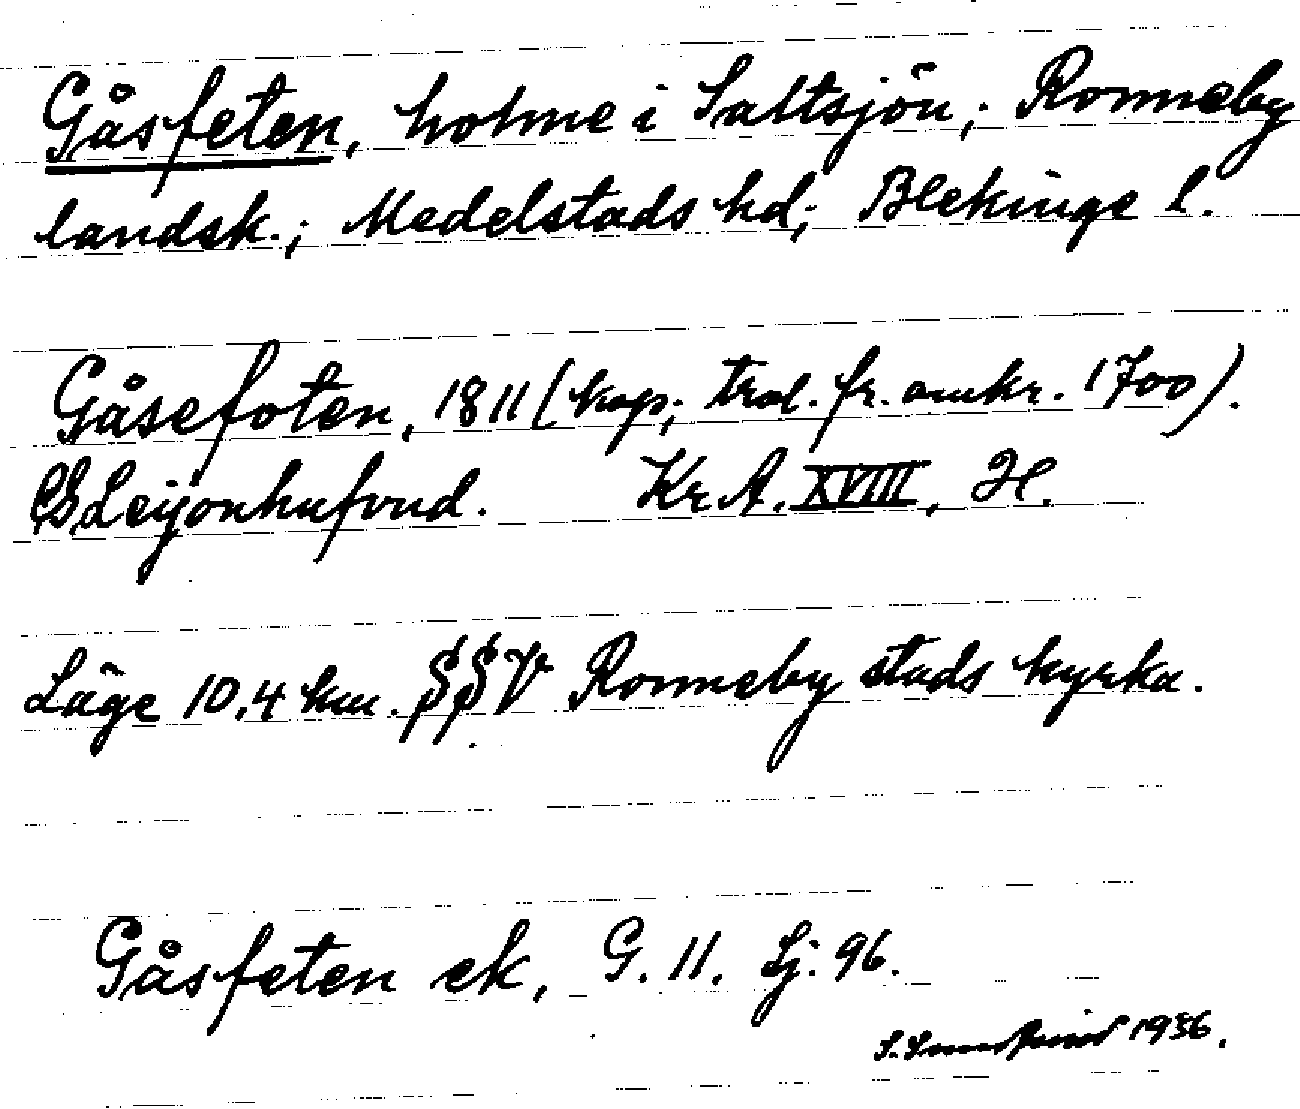 Gåsfeten, holme i Saltsjön; Ronneby
landsk.; Medelstads hd; Blekinge l.
Gåsefoten, 1811 (kop; trol. fr. omkr. 1700).
CGLeijonhufvud. Kr A. XVIII, H.
Läge 10,4 km. SSV Ronneby stads kyrka.
Gåsfeten ek, G. 11. Lj: 96.
1936.